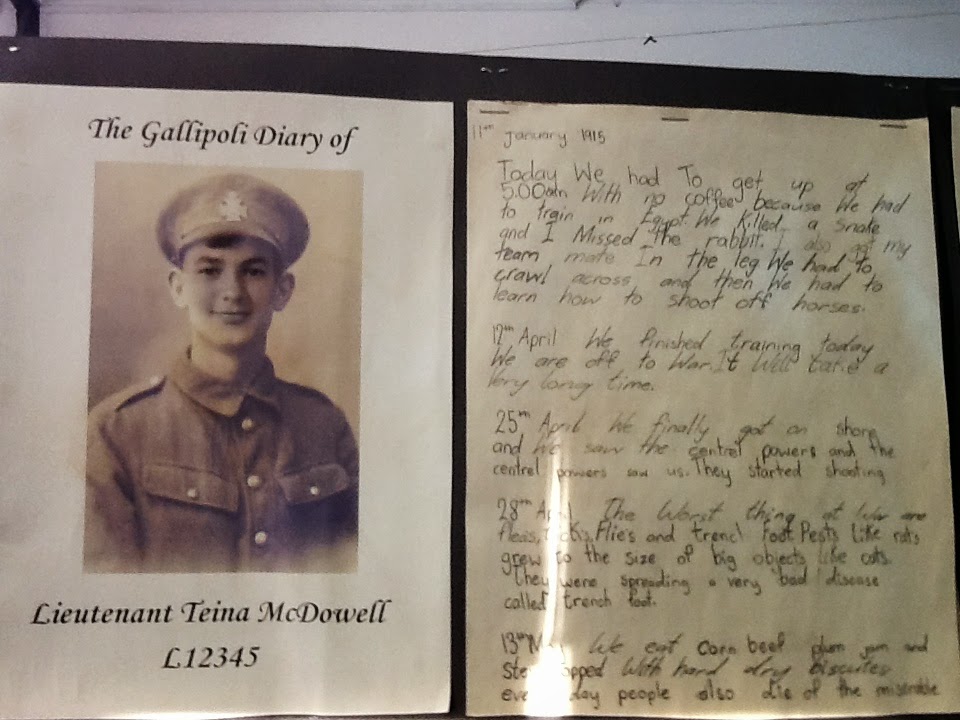 The Gallipoli Diary of
Lieutenant Teina McDowell
L12345
11th January 1915
Today We had To get up at
5.00am With no coffee because We had
to train in Egypt. We Killed a Snake
and I Missed The rabbit. I also got my
team mate In the leg We had to
crawl across and then We had to
learn how to shoot off horses.
12th April We finished training today
We are off to War. It Will take a
Very long time.
25th April We finally got on shore
and We saw the central powers and the
central powers saw us. They started shooting
28th The Worst thing at War are
fleas, Flies and trench foot. Pests Like rats
grew to the size of big objects like cats.
They were spreading a very bad disease
called trench foot.
13th We eat corn beef plum jam and
With hard dry biscuites
day people also die of the miserable